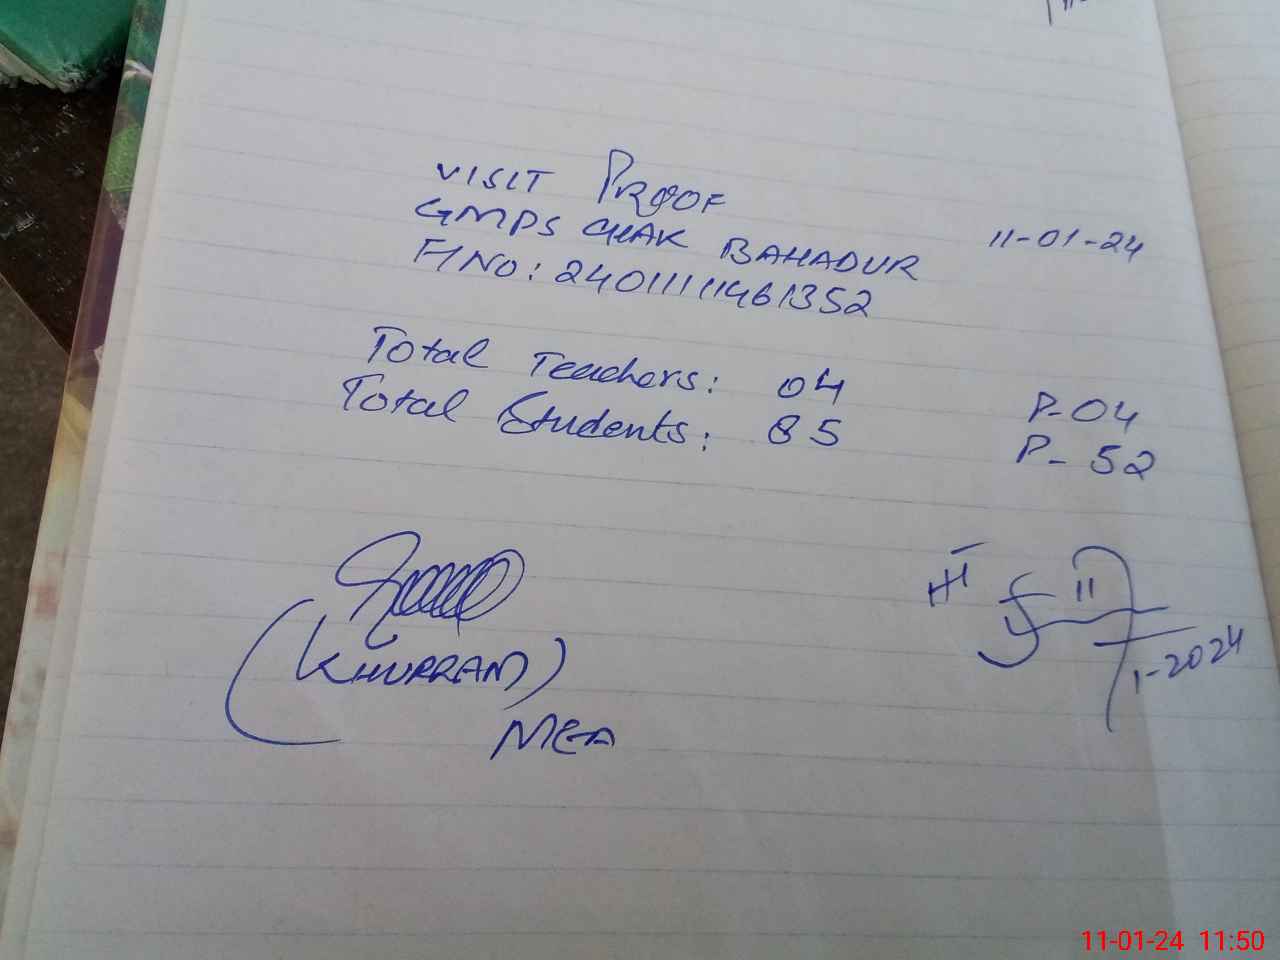 VISIT PROOF
GMPS CHAK BAHADUR 11-01-24
FINO: 24011111461352
Total Teachers: 04 P-04
Total Students: 85 P-52
(KHURRAM)
MEA
HT
11
1-2024
11-01-24 11:50